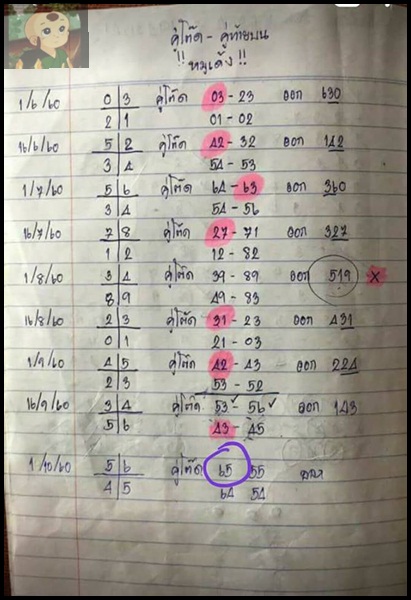 คู่โต๊ด - คู่ท้ายบน
!! หมูเด้ง !!
1/6/60 0|3 คู่โต๊ด 03 - 23 ออก 630
2|1 01 - 02
16/6/60 5|2 คู่โต๊ด 42 - 32 ออก 142
3|4 54 - 53
1/7/60 5|6 คู่โต๊ด 64 - 63 ออก 360
3|4 54 - 56
16/7/60 7|8 คู่โต๊ด 27 - 71 ออก 327
1|2 12 - 82
1/8/60 3|4 คู่โต๊ด 39 - 89 ออก 519 x
8|9 49 - 83
16/8/60 2|3 คู่โต๊ด 31 - 23 ออก 431
0|1 21 - 03
1/9/60 4|5 คู่โต๊ด 42 - 43 ออก 224
2|3 53 - 52
16/9/60 3|4 คู่โต๊ด 53 ✓ - 56 ✓ ออก 143
5|6 43 - 45
1/10/60 5|6 คู่โต๊ด 65 55
4|5 64 54